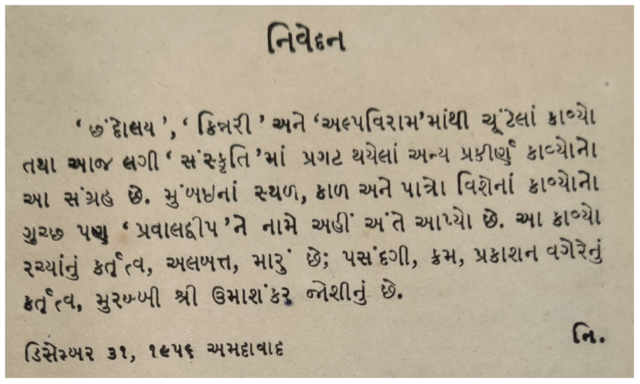 નિવેદન
‘છંદોલય’, ‘કિન્નરી’ અને ‘અલ્પવિરામ’માંથી ચૂંટેલાં કાવ્યો
તથા આજ લગી ‘સંસ્કૃતિ’માં પ્રગટ થયેલાં અન્ય પ્રકીર્ણ કાવ્યોનો
આ સંગ્રહ છે. મુંબઇનાં સ્થળ, કાળ અને પાત્રો વિશેનાં કાવ્યોનો
ગુચ્છ પણ ‘પ્રવાલદ્વીપ’ને નામે અહીં અંતે આપ્યો છે. આ કાવ્યો
રચ્યાંનું કર્તૃત્વ, અલબત્ત, મારું છે; પસંદગી, ક્રમ, પ્રકાશન વગેરેનું
કર્તૃત્વ, મુરબ્બી શ્રી ઉમાશંકર જોશીનું છે.
નિ.
ડિસેમ્બર ૩૧, ૧૯૫૬ અમદાવાદ